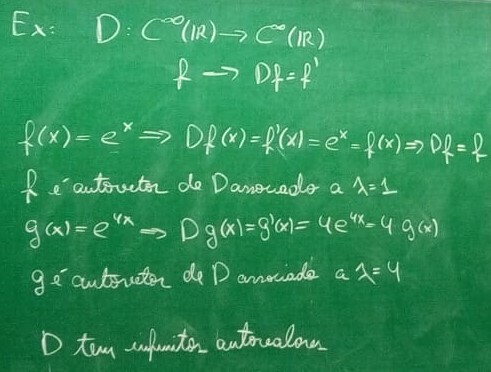 Ex: D: C^∞(IR) → C^∞(IR)
f → Df = f'
f(x) = e^x ⇒ Df(x) = f'(x) = e^x = f(x) ⇒ Df = f
f é autovetor de D associado a λ=1
g(x) = e^{4x} ⇒ Dg(x) = g'(x) = 4e^{4x} = 4·g(x)
g é autovetor de D associado a λ=4
D tem infinitos autovalores